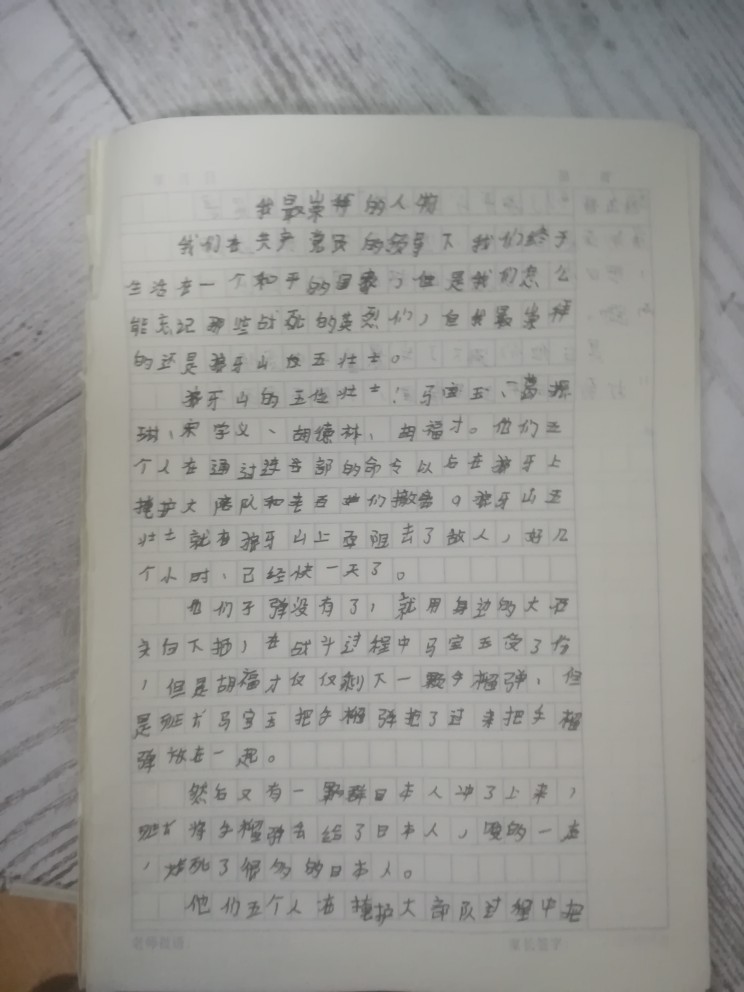 我最崇拜的人物
我们在共产党员的领导下我们终于
生活在一个和平的国家,但是我们怎么
能忘记那些战死的英烈们,但我最崇拜
的还是狼牙山 五壮士。
狼牙山的五位壮士:马宝玉、葛振
琳、宋学义、胡德林、胡福才。他们五
个人在通过 部的命令以后在狼牙上
掩护大部队和老百姓们撤 。狼牙山五
壮士就在狼牙山上 阻击了敌人,好几
个小时、已经快一天了。
他们子弹没有了,就用身边的大石
头向下 ,在战斗过程中马宝玉受了伤
,但是胡福才仅仅剩下一颗手榴弹、但
是班长马宝玉把手榴弹 了过来把手榴
弹放在一起。
然后又有一 群日本人冲了上来,
班长将手榴弹 给了日本人, 的一声
,炸死了很多的日本人。
他们五个人在掩护大部队过程中把
老师批语
家长签字